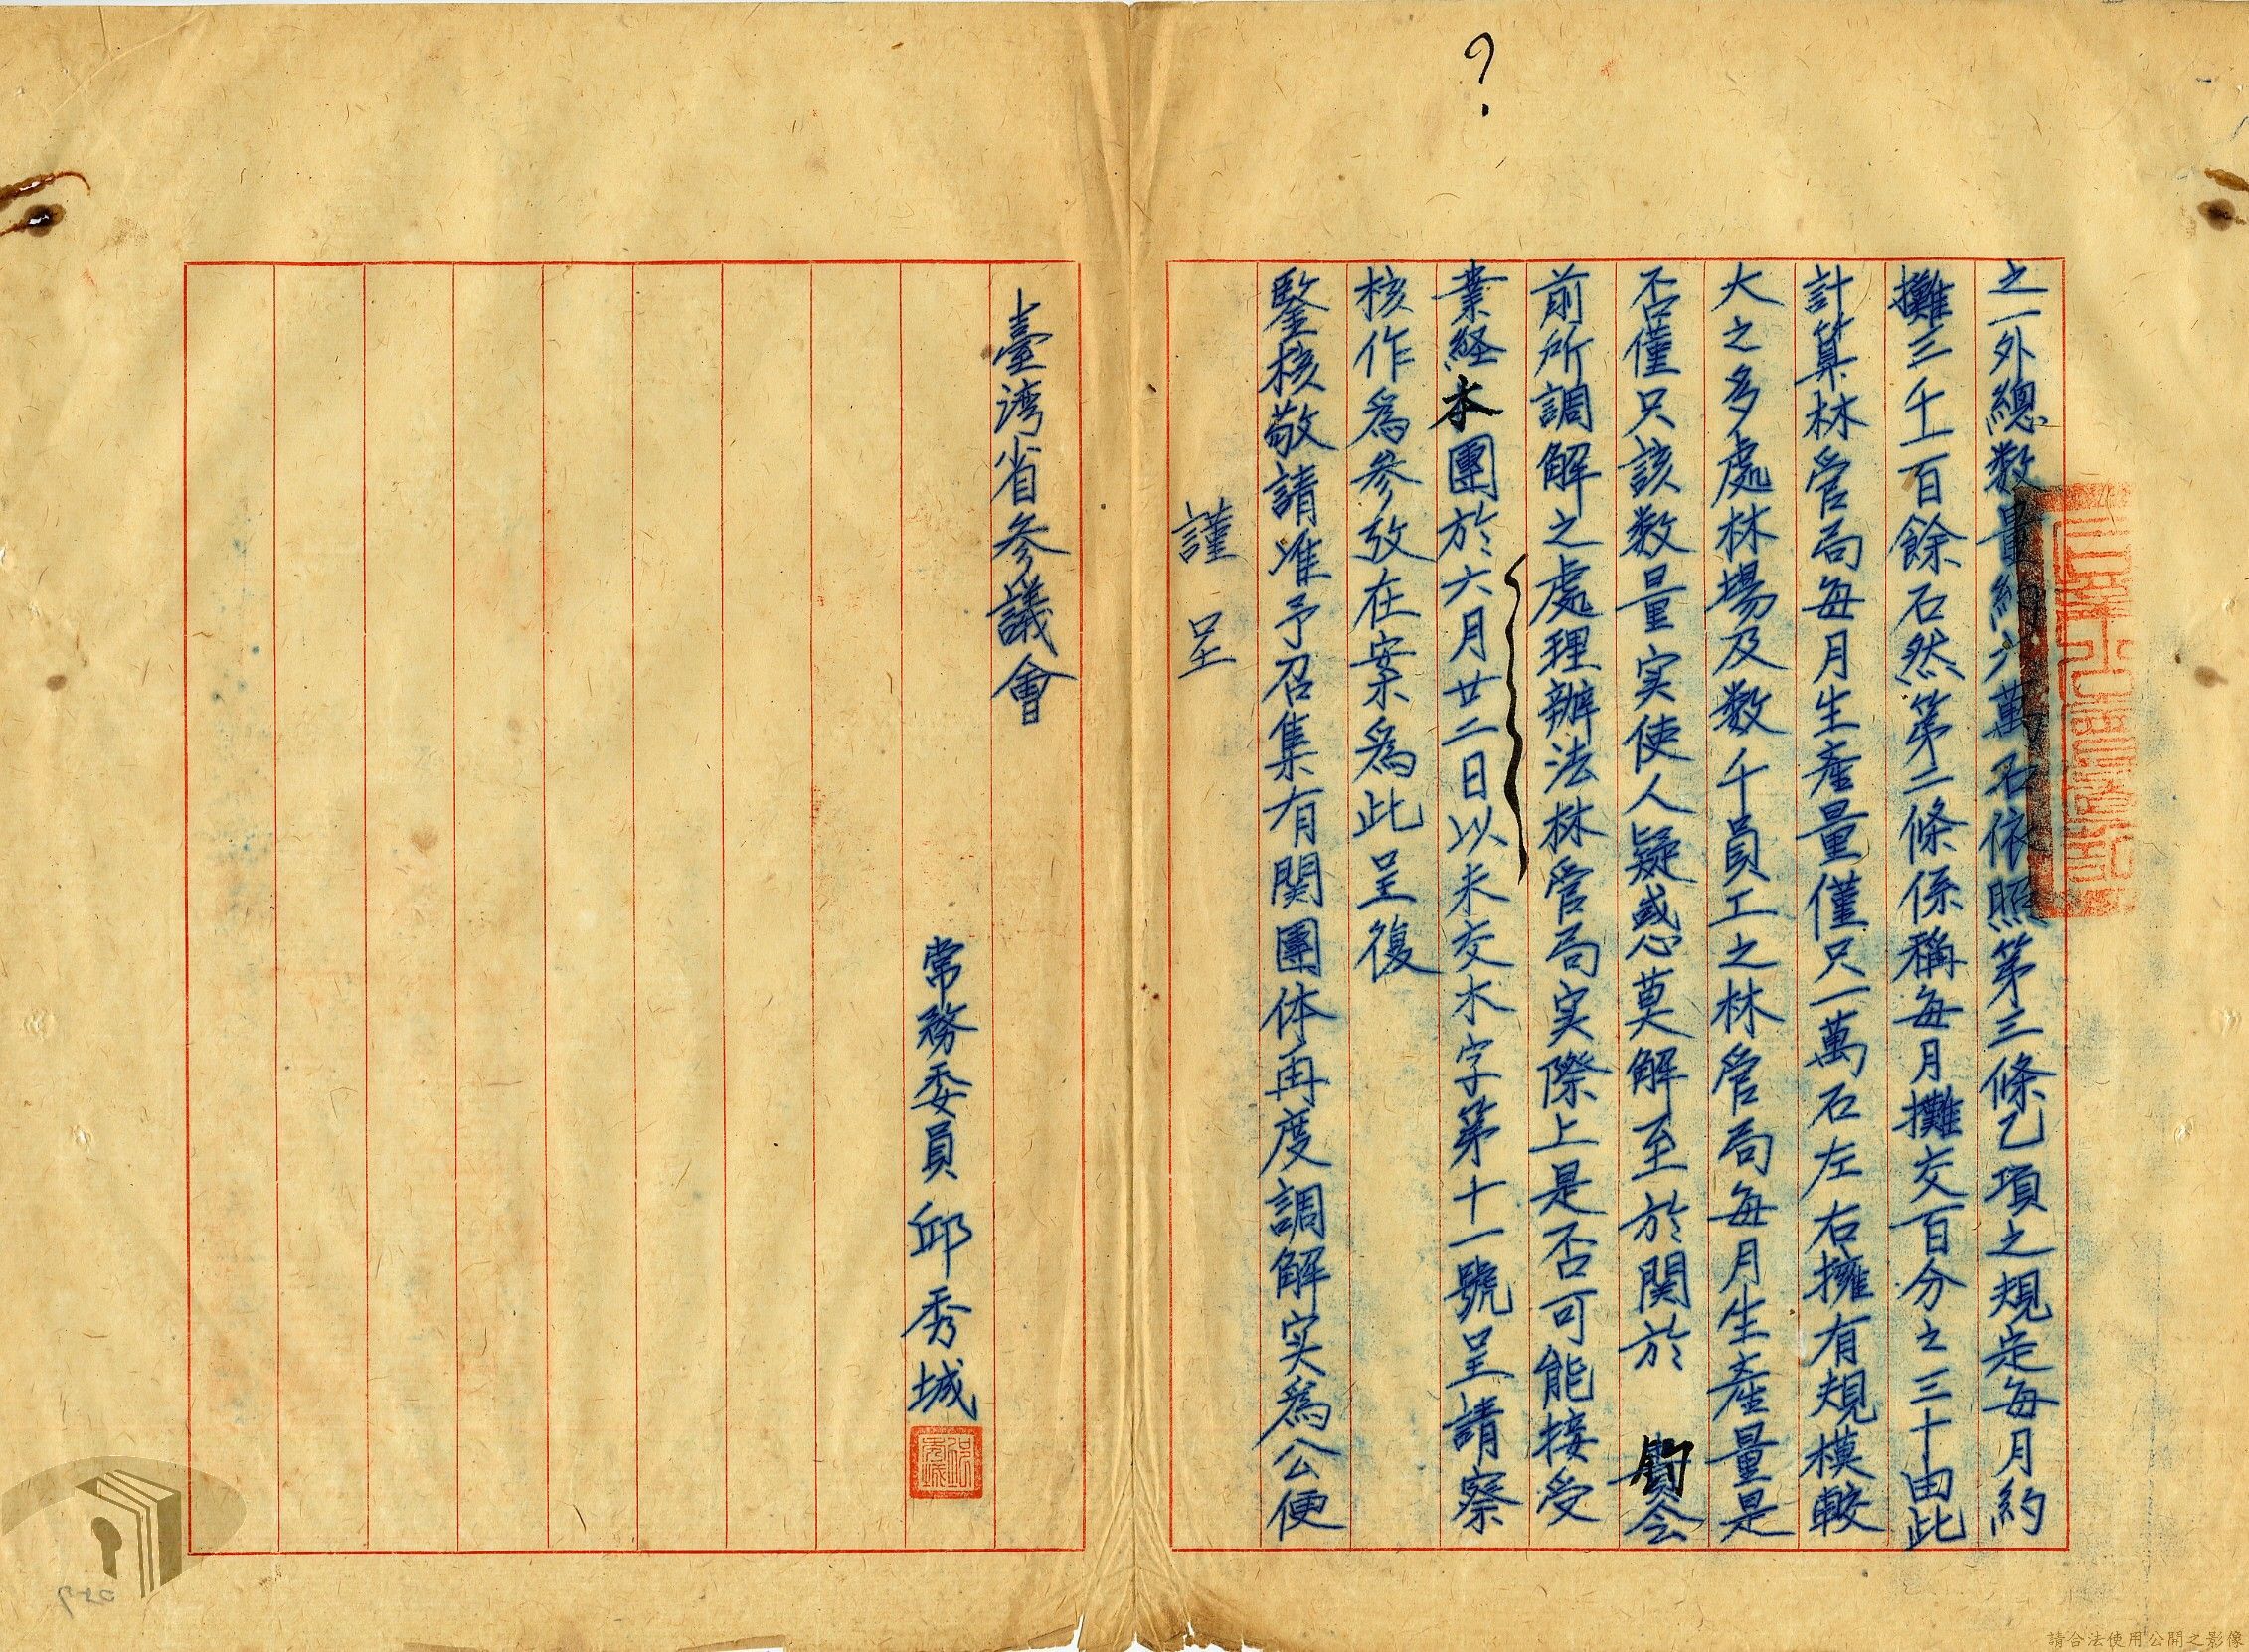 ?
之一外總数量約六萬石依照第三條乙項之規定每月約
攤三千一百餘石然第二條係稱每月攤交百分之三十由此
計算林管局每月生產量僅只一萬石左右擁有規模較
大之多處林場及数千員工之林管局每月生產量是
否僅只該数量实使人疑惑莫解至於関於 鈞会
前所調解之處理辦法林管局实際上是否可能接受
業経本團於六月廿二日以未交木字第十一號呈請察
核作爲參攷在案爲此呈復
鑒核敬請准予召集有関團体再度調解实爲公便
謹呈
臺湾省參議會
常務委員 邱秀城
請合法使用公開之影像